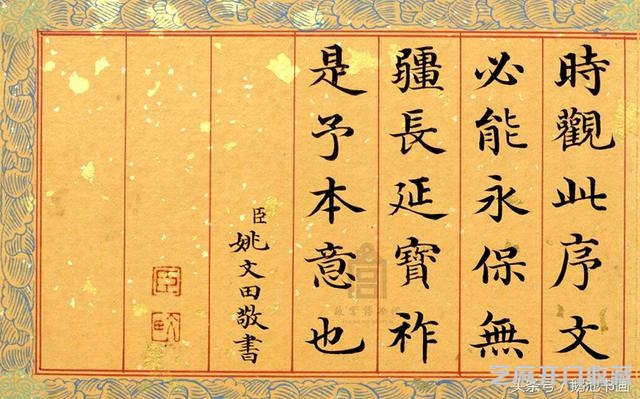 時觀此序文
必能永保無
疆長延寶祚
是予本意也
臣姚文田敬書
臣
故宫博物院
头条号/鹅池书画